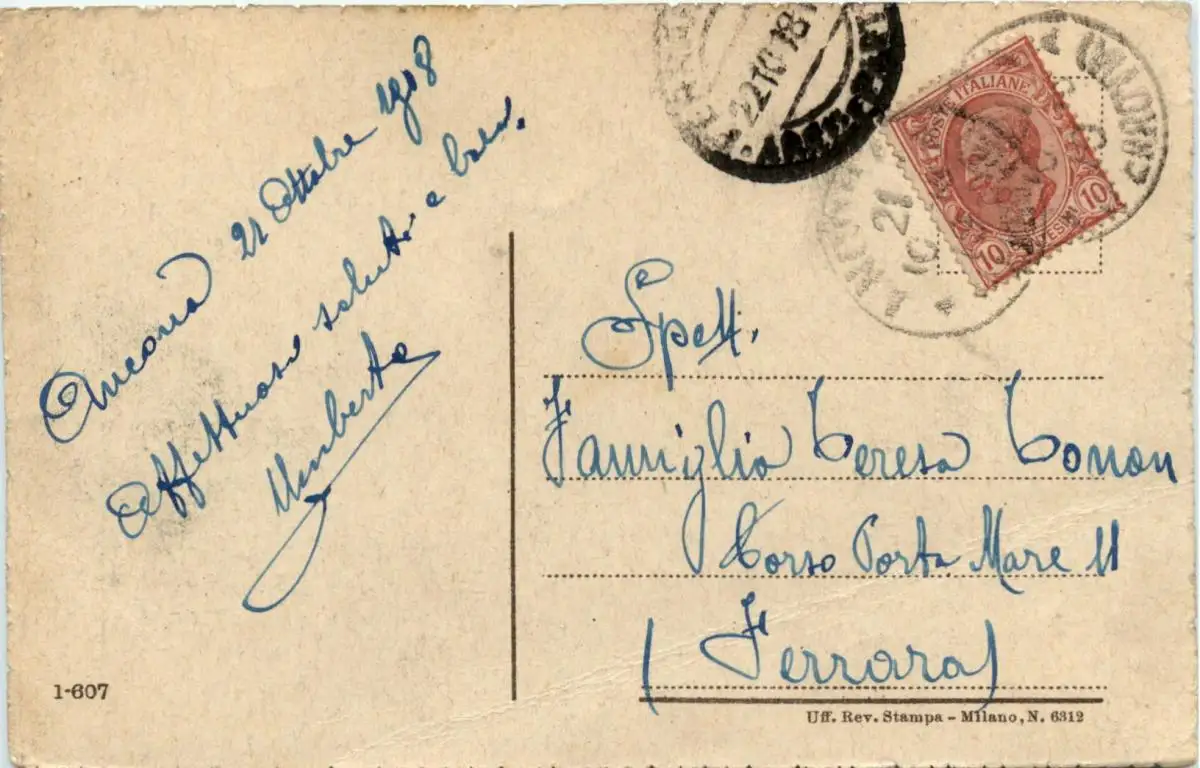 Ancona 21 Ottobre 1918
Affettuosi saluti e baci.
Umberto
1-607
22 10 18
POSTE ITALIANE
10
10
21
10
Spett.
Famiglia Teresa Tonon
Corso Porta Mare 11
(Ferrara)
Uff. Rev. Stampa - Milano, N. 6312